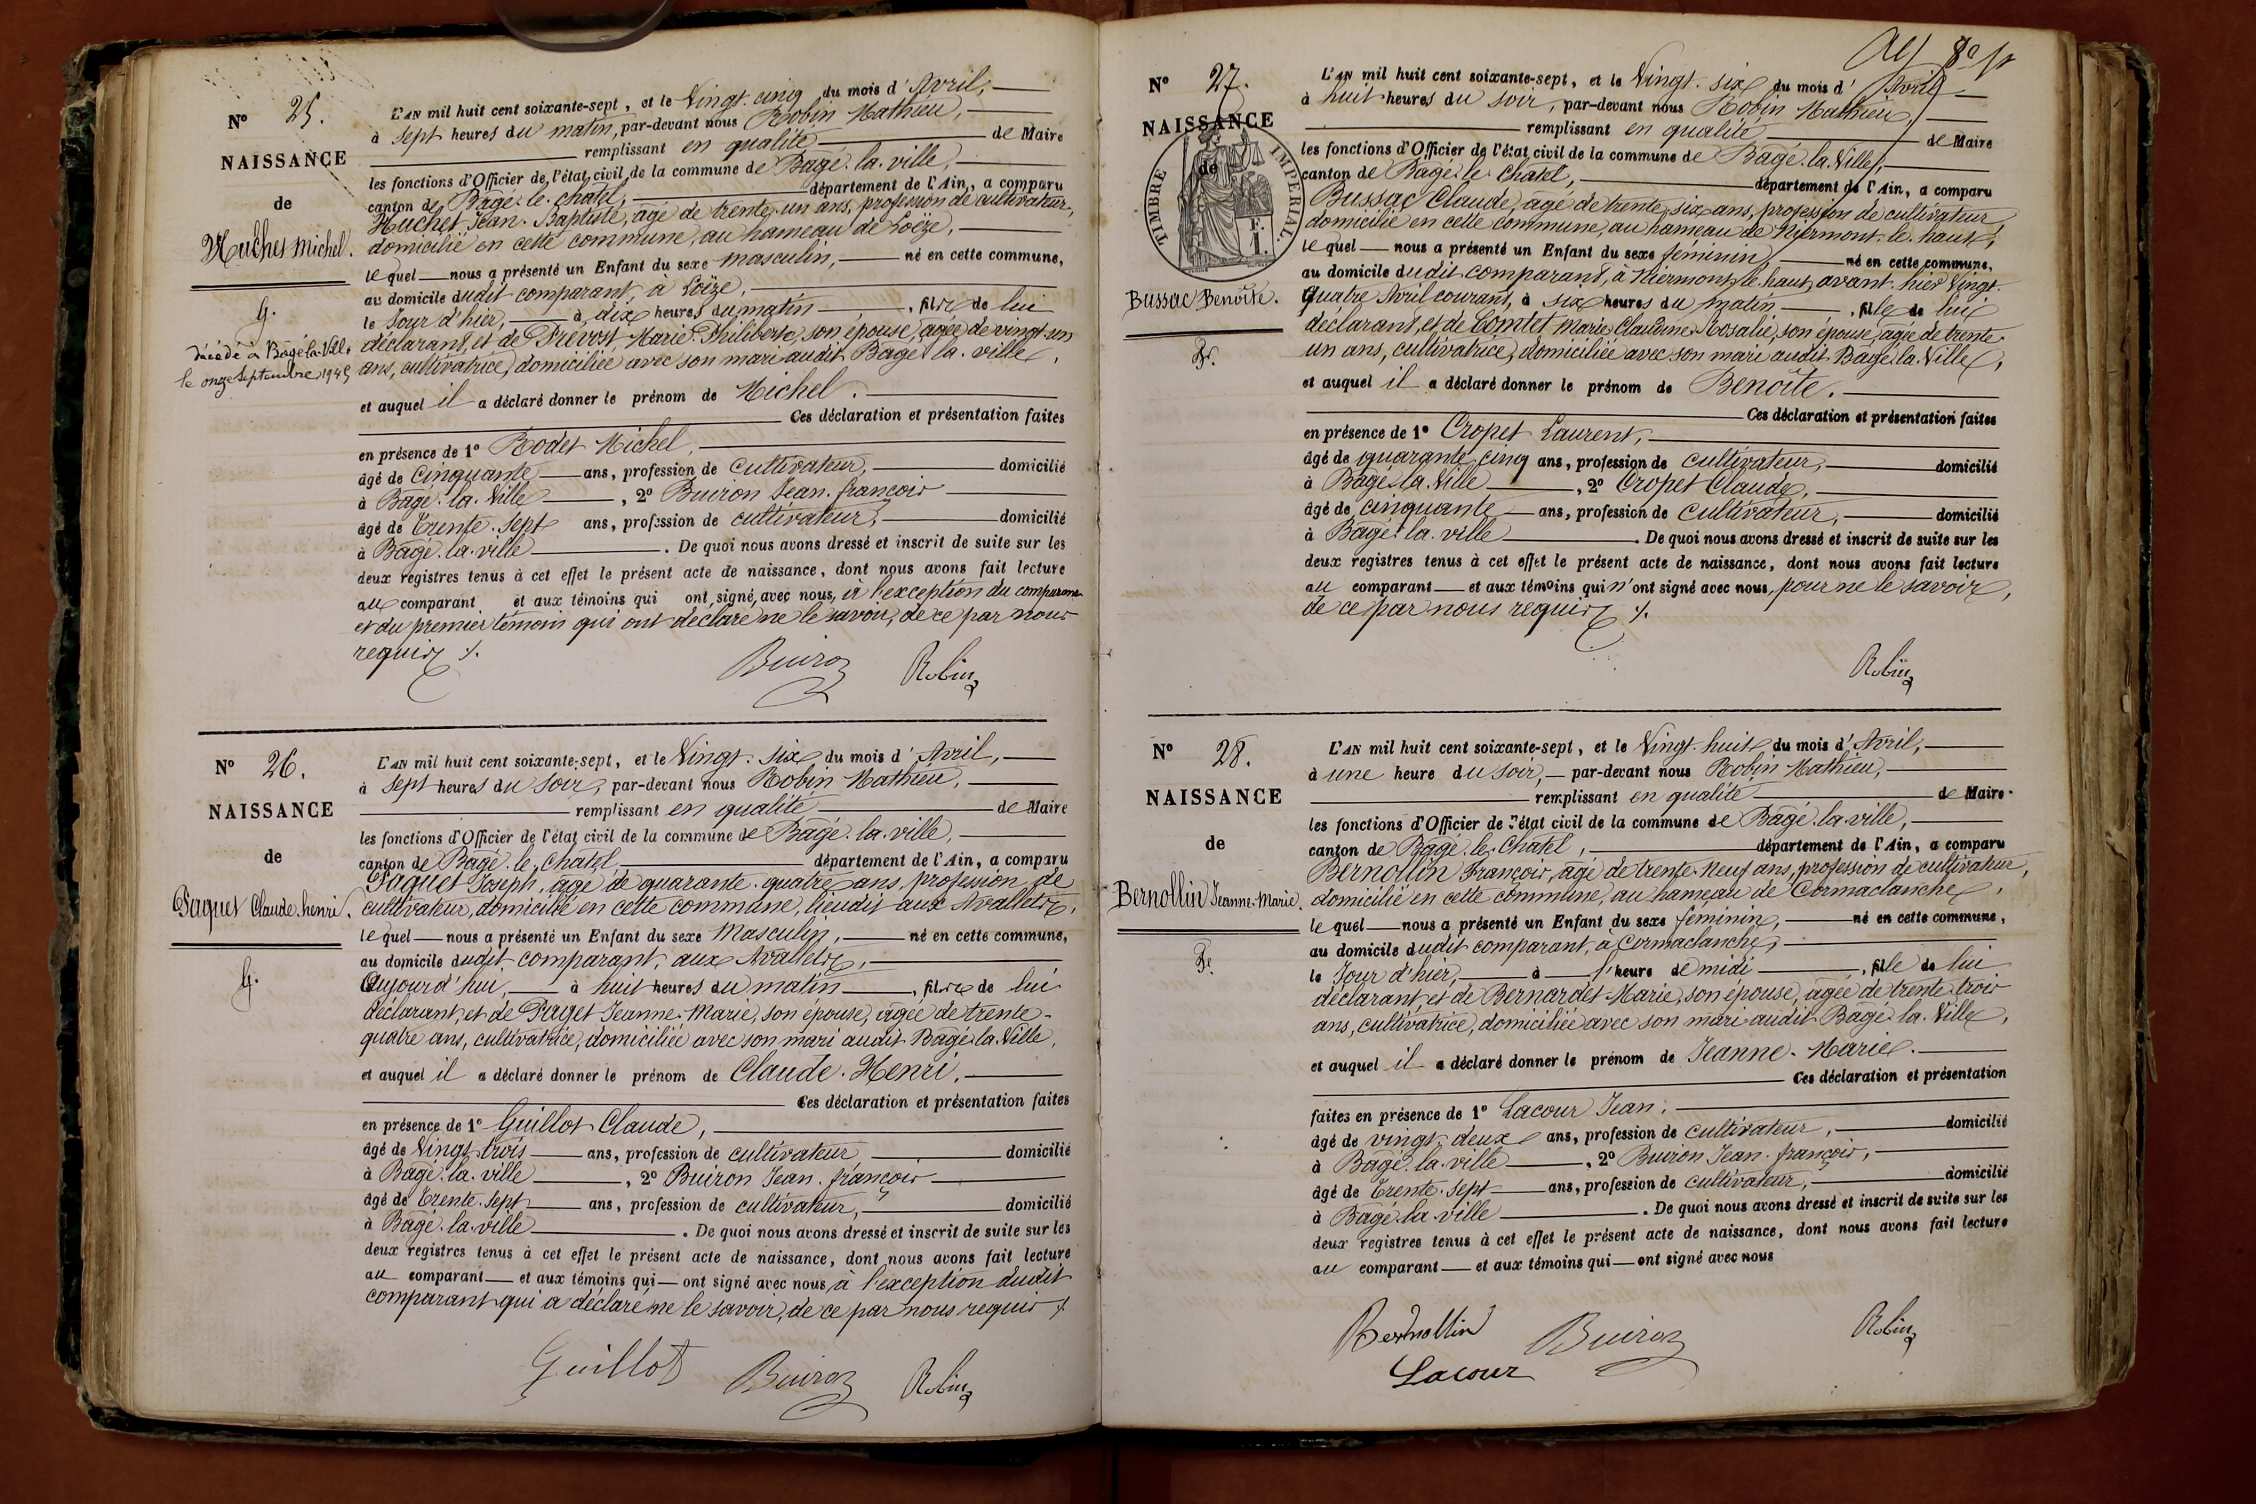 N° 25.
NAISSANCE
de
Huchet Michel.
G.
décédé à Bâgé-la-Ville
le onze Septembre 1945
L'AN mil huit cent soixante-sept, et le Vingt-cinq du mois d'Avril,
à sept heures du matin, par-devant nous Robin Mathieu,
remplissant en qualité de Maire
les fonctions d'Officier de l'état civil de la commune de Bâgé-la-ville,
canton de Bâgé-le-chatel, département de l'Ain, a comparu
Huchet Jean-Baptiste, âgé de trente-un ans, profession de cultivateur,
domicilié en cette commune, au hameau de Loëze,
lequel nous a présenté un Enfant du sexe masculin, né en cette commune,
au domicile dudit comparant, à Loëze,
le Jour d'hier, à dix heures du matin, fils de lui
déclarant, et de Prévost Marie-Philiberte, son épouse, âgée de vingt-un
ans, cultivatrice, domiciliée avec son mari audit Bâgé-la-ville,
et auquel il a déclaré donner le prénom de Michel.
Ces déclaration et présentation faites
en présence de 1° Rodet Michel,
âgé de cinquante ans, profession de cultivateur, domicilié
à Bâgé-la-Ville, 2° Buiron Jean-françois
âgé de Trente-sept ans, profession de cultivateur, domicilié
à Bâgé-la-ville. De quoi nous avons dressé et inscrit de suite sur les
deux registres tenus à cet effet le présent acte de naissance, dont nous avons fait lecture
au comparant et aux témoins qui ont signé avec nous, à l'exception du comparant
et du premier témoin qui ont déclaré ne le savoir, de ce par nous
requis ./.
Buiron Robin
N° 26.
NAISSANCE
de
Paquet Claude-henri.
G.
L'AN mil huit cent soixante-sept, et le Vingt-six du mois d'Avril,
à sept heures du soir, par-devant nous Robin Mathieu,
remplissant en qualité de Maire
les fonctions d'Officier de l'état civil de la commune de Bâgé-la-ville,
canton de Bâgé-le-Chatel, département de l'Ain, a comparu
Paquet Joseph, âgé de quarante-quatre ans, profession de
cultivateur, domicilié en cette commune, lieudit aux Avallets,
lequel nous a présenté un Enfant du sexe Masculin, né en cette commune,
au domicile dudit comparant, aux Avallets,
Aujourd'hui, à huit heures du matin, fils de lui
déclarant, et de Paget Jeanne-Marie, son épouse, âgée de trente-
quatre ans, cultivatrice, domiciliée avec son mari audit Bâgé-la-Ville,
et auquel il a déclaré donner le prénom de Claude-Henri.
Ces déclaration et présentation faites
en présence de 1° Guillot Claude,
âgé de Vingt-trois ans, profession de cultivateur domicilié
à Bâgé-la-ville, 2° Buiron Jean-françois
âgé de Trente-sept ans, profession de cultivateur, domicilié
à Bâgé-la-ville. De quoi nous avons dressé et inscrit de suite sur les
deux registres tenus à cet effet le présent acte de naissance, dont nous avons fait lecture
au comparant et aux témoins qui ont signé avec nous à l'exception dudit
comparant qui a déclaré ne le savoir, de ce par nous requis ./.
Guillot Buiron Robin
N° 27.
NAISSANCE
de
TIMBRE IMPÉRIAL.
Bussac Benoîte.
F.
L'AN mil huit cent soixante-sept, et le Vingt-six du mois d'Avril
à huit heures du soir, par-devant nous Robin Mathieu,
remplissant en qualité de Maire
les fonctions d'Officier de l'état civil de la commune de Bâgé-la-Ville,
canton de Bâgé-le-Chatel, département de l'Ain, a comparu
Bussac Claude, âgé de trente-six ans, profession de cultivateur
domicilié en cette commune, au hameau de Niermont-le-haut,
lequel nous a présenté un Enfant du sexe féminin, né en cette commune,
au domicile dudit comparant, à Niermont-le-haut, avant-hier Vingt-
Quatre Avril courant, à six heures du matin, fille de lui
déclarant, et de Comtet Marie Claudine-Rosalie, son épouse, âgée de trente-
un ans, cultivatrice, domiciliée avec son mari audit Bâgé-la-Ville,
et auquel il a déclaré donner le prénom de Benoîte.
Ces déclaration et présentation faites
en présence de 1° Cropet Laurent,
âgé de quarante-cinq ans, profession de cultivateur, domicilié
à Bâgé-la-Ville, 2° Cropet Claude,
âgé de cinquante ans, profession de cultivateur, domicilié
à Bâgé-la-ville. De quoi nous avons dressé et inscrit de suite sur les
deux registres tenus à cet effet le présent acte de naissance, dont nous avons fait lecture
au comparant et aux témoins qui n'ont signé avec nous, pour ne le savoir,
de ce par nous requis ./.
Robin
N° 28.
NAISSANCE
de
Bernollin Jeanne-Marie.
F.
L'AN mil huit cent soixante-sept, et le Vingt-huit du mois d'Avril,
à une heure du soir, par-devant nous Robin Mathieu,
remplissant en qualité de Maire
les fonctions d'Officier de l'état civil de la commune de Bâgé-la-ville,
canton de Bâgé-le-Chatel, département de l'Ain, a comparu
Bernollin François, âgé de trente-neuf ans, profession de cultivateur,
domicilié en cette commune, au hameau de Cormaclanche,
lequel nous a présenté un Enfant du sexe féminin, né en cette commune,
au domicile dudit comparant, à Cormaclanche,
le Jour d'hier, à l'heure de midi, fille de lui
déclarant, et de Bernardet Marie, son épouse, âgée de trente-trois
ans, cultivatrice, domiciliée avec son mari audit Bâgé-la-Ville,
et auquel il a déclaré donner le prénom de Jeanne-Marie.
Ces déclaration et présentation
faites en présence de 1° Lacour Jean,
âgé de vingt-deux ans, profession de cultivateur, domicilié
à Bâgé-la-ville, 2° Buiron Jean-françois,
âgé de Trente-sept ans, profession de cultivateur, domicilié
à Bâgé-la-ville. De quoi nous avons dressé et inscrit de suite sur les
deux registres tenus à cet effet le présent acte de naissance, dont nous avons fait lecture
au comparant et aux témoins qui ont signé avec nous
Bernollin Buiron Robin
Lacour